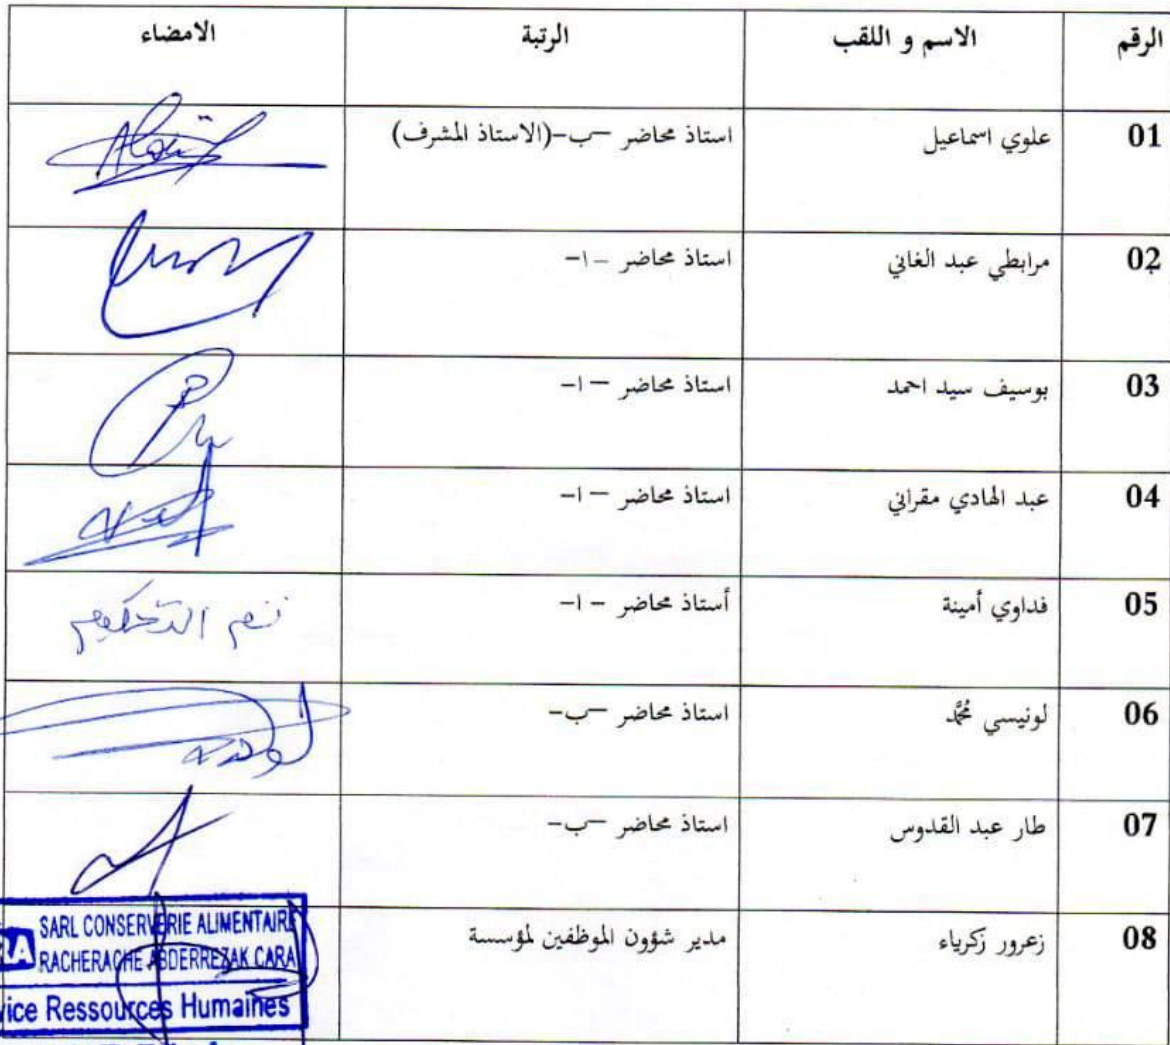 الرقم الاسم و اللقب الرتبة الامضاء
01 علوي اسماعيل استاذ محاضر –ب-(الاستاذ المشرف)
02 مرابطي عبد الغاني استاذ محاضر –ا-
03 بوسيف سيد احمد استاذ محاضر – ا-
04 عبد الهادي مقراني استاذ محاضر – ا-
05 فداوي أمينة أستاذ محاضر – ا- التحكيم
06 لونيسي محمد استاذ محاضر –ب-
07 طار عبد القدوس استاذ محاضر –ب-
08 زعرور زكرياء مدير شؤون الموظفين لمؤسسة
SARL CONSERVERIE ALIMENTAIRE
RACHERACHE ABDERREZAK CARA
Ressources Humaines